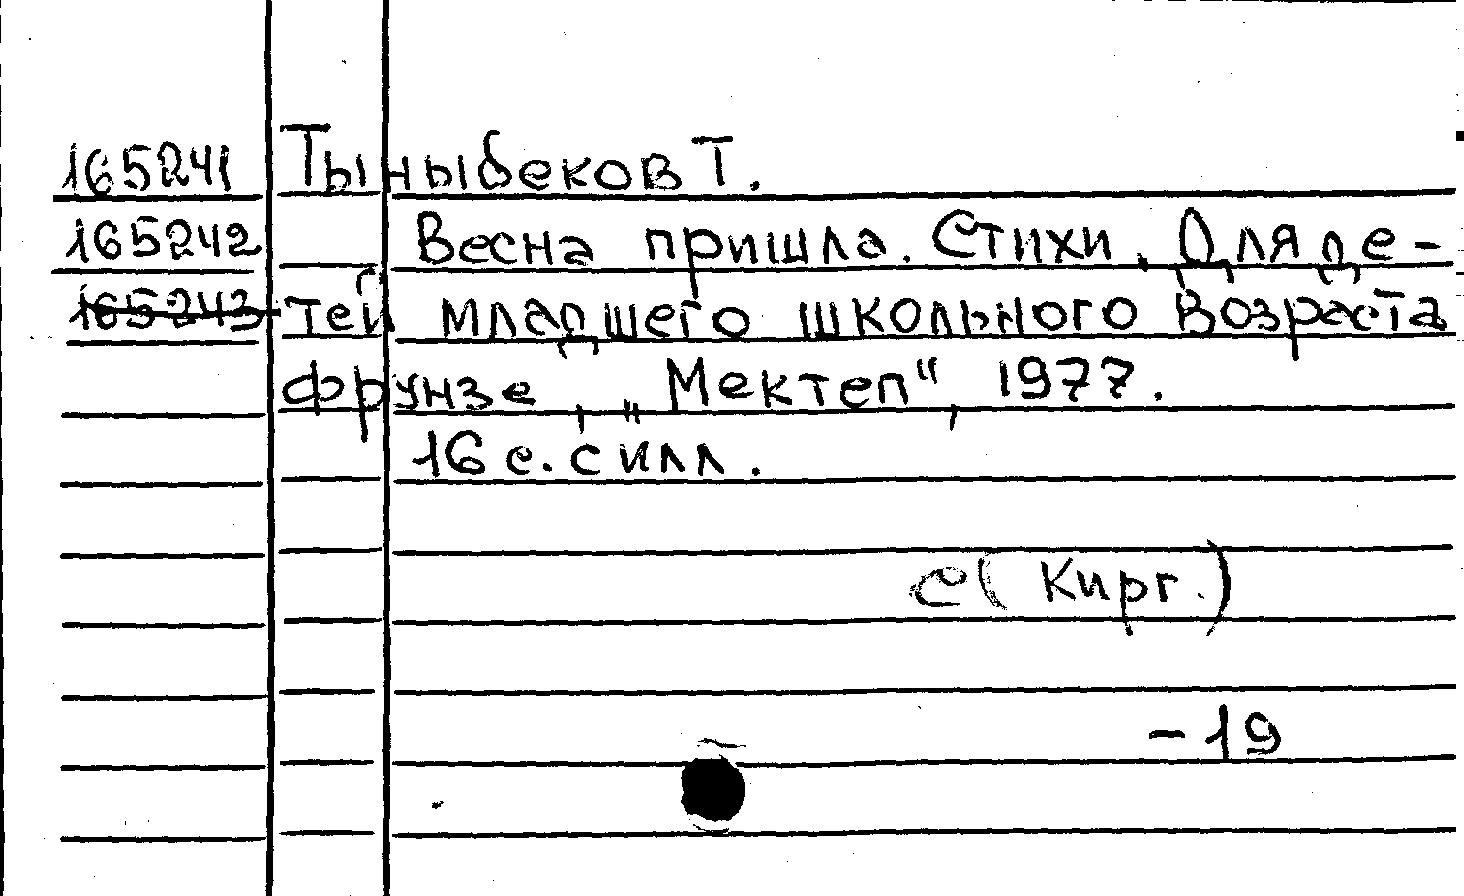 165241 Тыныбеков Т.
165242 Весна пришла. Стихи. Для де-
165243 тей младшего школьного возраста
Фрунзе, „Мектеп“, 1977.
16 с. с илл.
С (Кирг.)
- 19